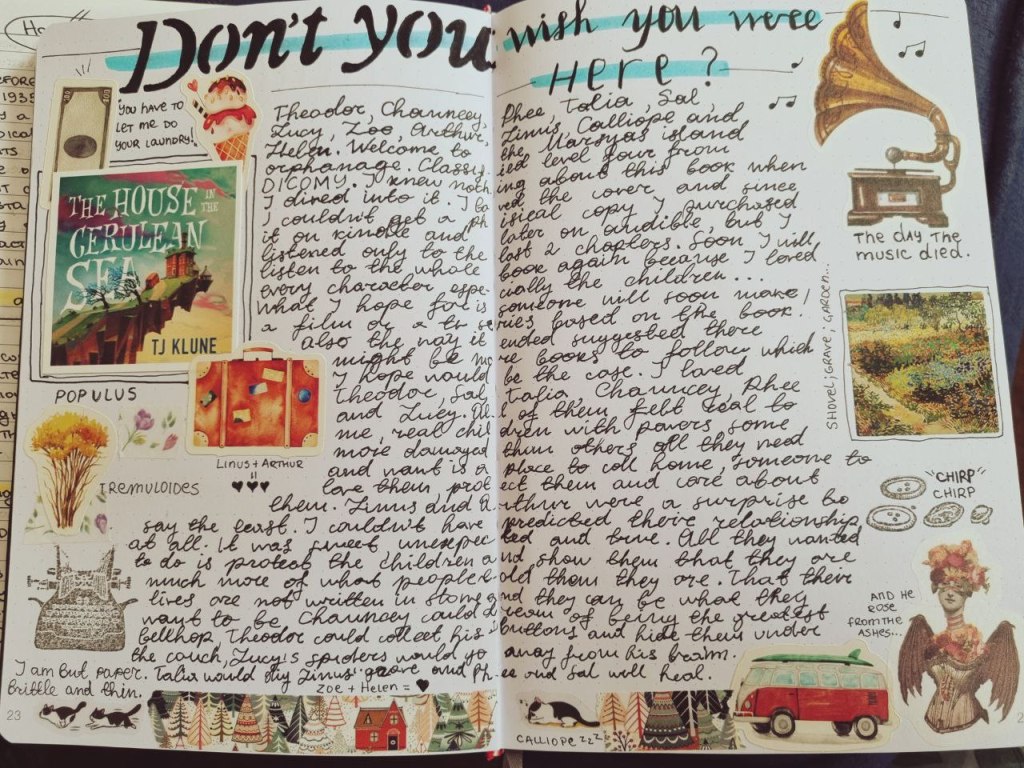 Don't you wish you were
HERE?
YOU HAVE TO
LET ME DO
YOUR LAUNDRY!
THE HOUSE IN THE
CERULEAN
SEA
TJ KLUNE
POPULUS
TREMULOIDES
LINUS + ARTHUR
=
Theodor, Chauncey, Phee, Talia, Sal
Lucy, Zoe, Arthur, Linus, Calliope and
Helen. Welcome to the Marsyas island
orphanage. Classy level four from
DICOMY. I knew noth ing about this book when
I dived into it. I lo ved the cover and since
I couldn't get a ph isical copy I purchased
it on kindle and later on audible, but I
listened only to the last 2 chapters. Soon I will
listen to the whole book again because I loved
every character espe cially the children...
What I hope for is someone will soon make
a film or a tv se ries based on the book.
also the way it ended suggested there
might be mo re books to follow which
I hope would be the case. I loved
Theodor, Sal, Talia, Chauncey, Phee
and Lucy. All of them felt real to
me, real chil dren with powers some
more damaged than others all they need
and want is a place to call home, someone to
love them, prot ect them and care about
them. Linus and A rthur were a surprise to
say the least. I couldn't have predicted their relationship
at all. It was sweet unexpec ted and true. All they wanted
to do is protect the children and show them that they are
much more of what people told them they are. That their
lives are not written in stone and they can be what they
want to be. Chauncey could dream of being the greatest
bellhop, Theodor could collect his buttons and hide them under
the couch, Lucy's spiders would go away from his brain.
Talia would dig Linus' grave and Phee and Sal will heal.
I am but paper.
Brittle and thin.
Zoe + Helen =
23
The day the
music died.
SHOVEL; GRAVE; GARDEN...
"CHIRP"
CHIRP
AND HE
ROSE
FROM THE
ASHES...
CALLIOPE zzz